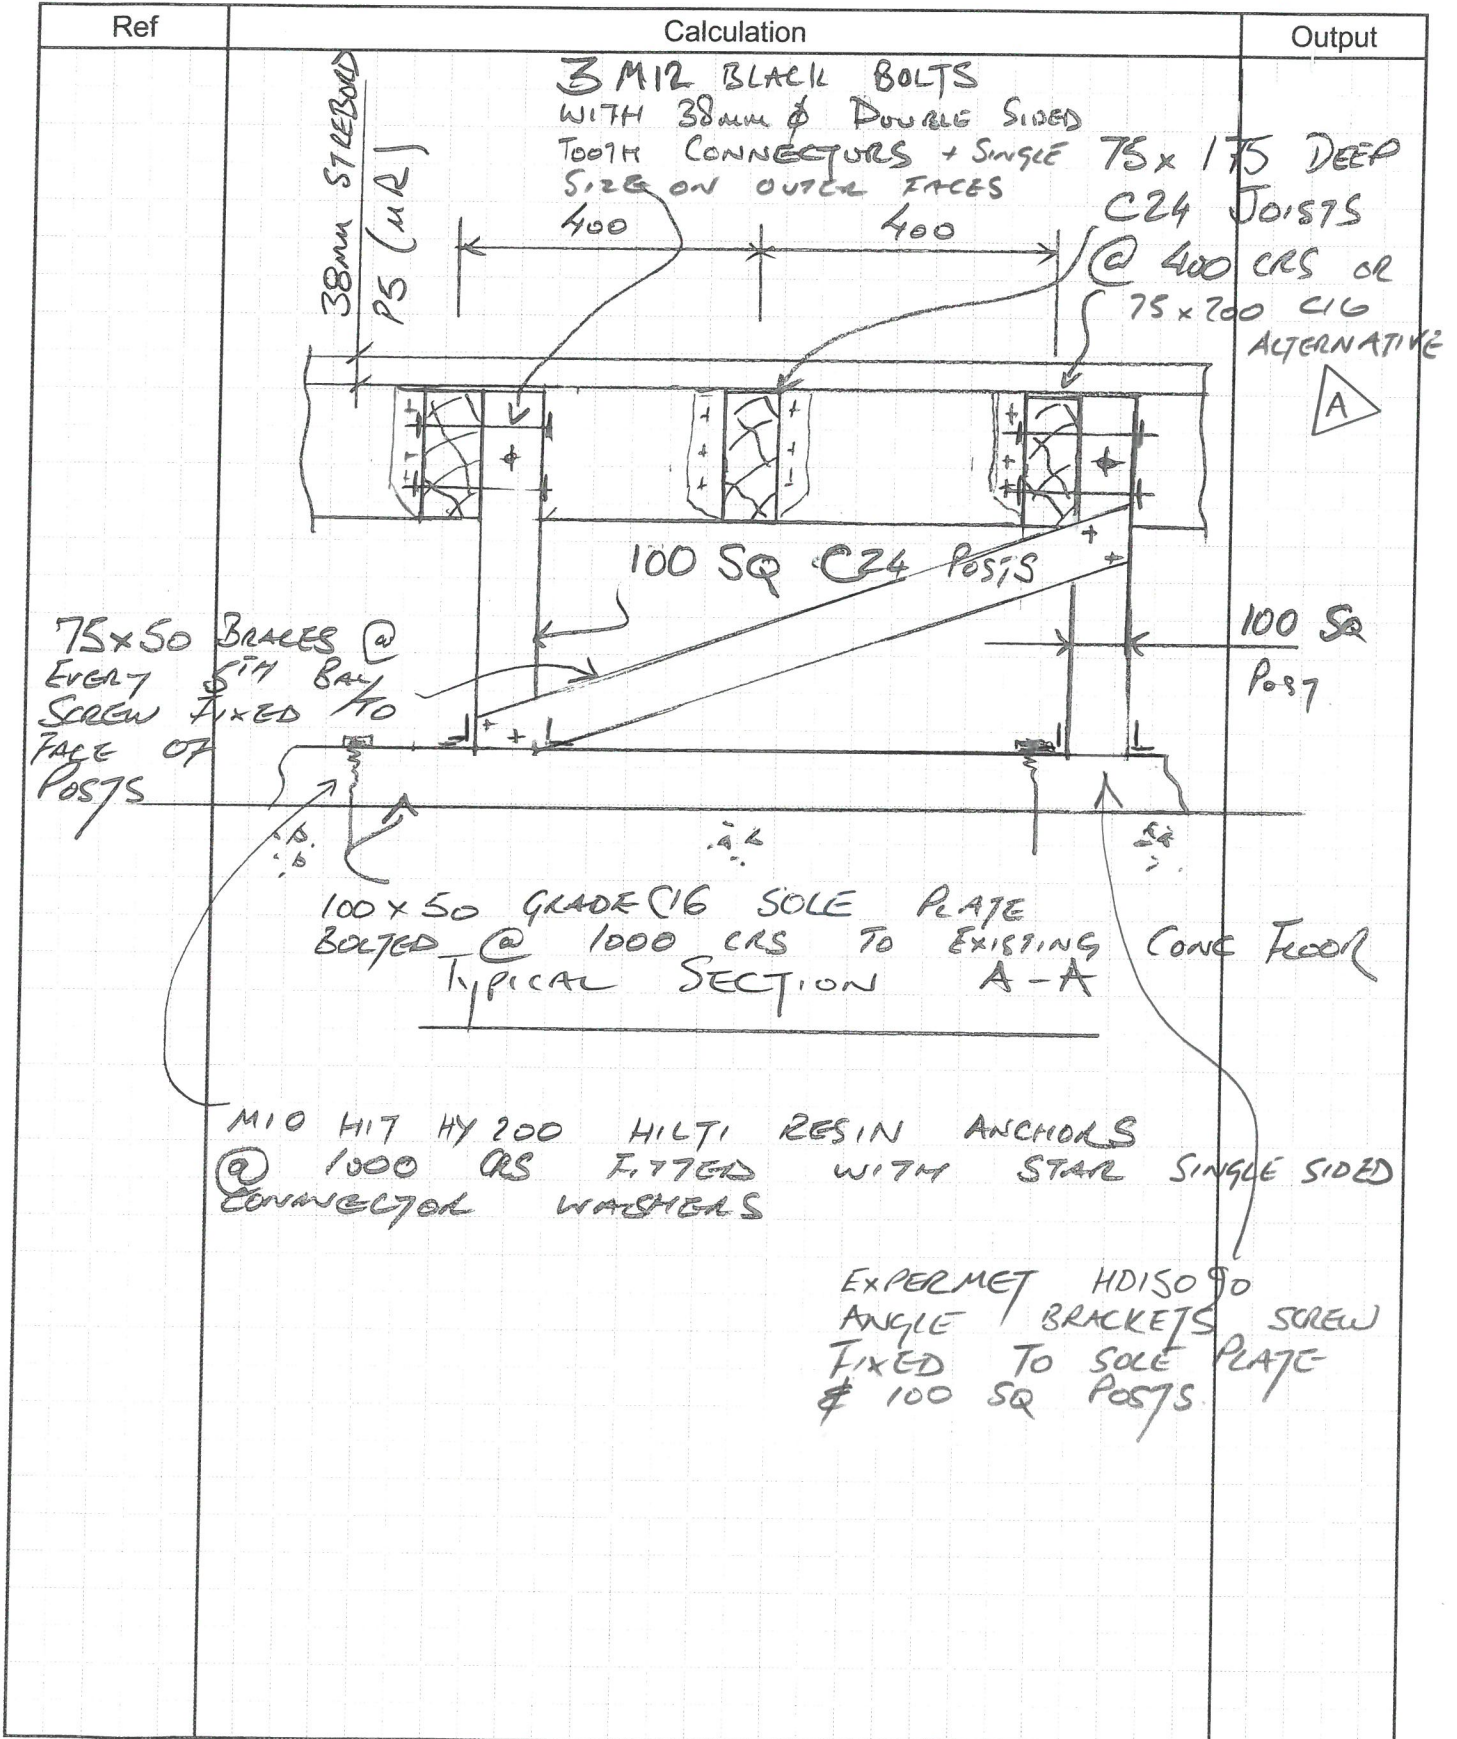 Ref
Calculation
Output
38mm STREBORD
P5 (MR)
3 M12 BLACK BOLTS
WITH 38mm ϕ DOUBLE SIDED
TOOTH CONNECTORS + SINGLE
SIZE ON OUTER FACES
400
400
75 x 175 DEEP
C24 JOISTS
@ 400 CRS OR
75 x 200 C16
ALTERNATIVE
A
100 SQ C24 POSTS
75x50 BRACES @
EVERY 5TH BAY
SCREW FIXED TO
FACE OF
POSTS
100 SQ
POST
100 x 50 GRADE C16 SOLE PLATE
BOLTED @ 1000 CRS TO EXISTING CONC FLOOR
TYPICAL SECTION A-A
M10 HIT HY 200 HILTI RESIN ANCHORS
@ 1000 CRS FITTED WITH STAR SINGLE SIDED
CONNECTOR WASHERS
EXPERMET HD15090
ANGLE BRACKETS SCREW
FIXED TO SOLE PLATE
& 100 SQ POSTS.